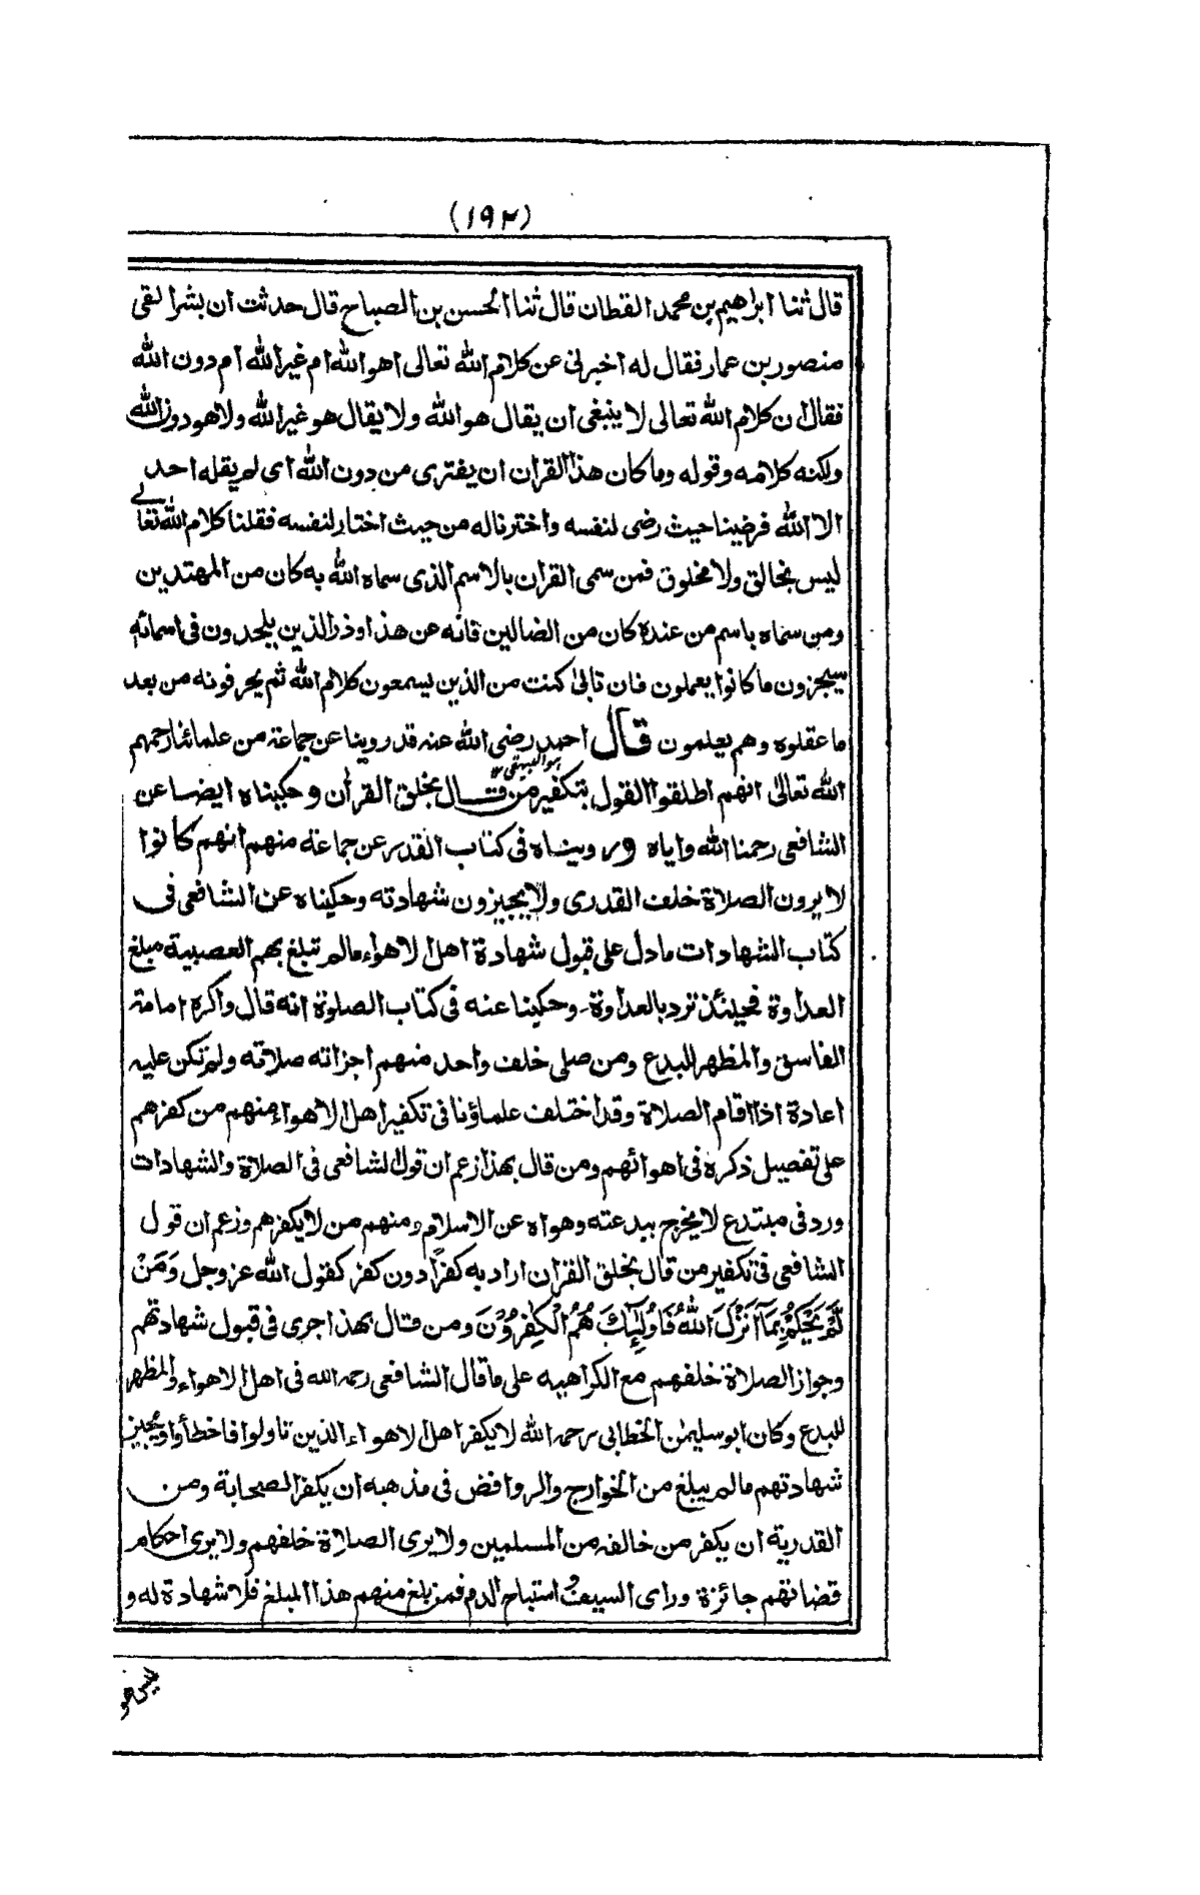 (۱۹۲)
قال ثنا ابراهيم بن محمد القطان قال ثنا الحسن بن الصباح قال حدثت ان بشرا لقى
منصور بن عمار فقال له اخبرنى عن كلام الله تعالى اهو الله ام غير الله ام دون الله
فقال ان كلام الله تعالى لا ينبغى ان يقال هو الله ولا يقال هو غير الله ولا هو دون الله
ولكنه كلامه وقوله وما كان هذا القران ان يفترى من دون الله اى لم يقله احد
الا الله فرضينا حيث رضى لنفسه واخترنا له من حيث اختار لنفسه فقلنا كلام الله تعالى
ليس بخالق ولا مخلوق فمن سمى القران بالاسم الذى سماه الله به كان من المهتدين
ومن سماه باسم من عنده كان من الضالين فانه عن هذا وذر الذين يلحدون فى اسمائه
سيجزون ما كانوا يعملون فان تابى كنت من الذين يسمعون كلام الله ثم يحرفونه من بعد
ما عقلوه وهم يعلمون قال احمد رضى الله عنه قد روينا عن جماعة من علمائنا رحمهم
هو البيهقى ١٢
الله تعالى انهم اطلقوا القول بتكفير من قال بخلق القرأن وحكيناه ايضا عن
الشافعى رحمنا الله واياه ورويناه فى كتاب القدر عن جماعة منهم انهم كانوا
لا يرون الصلاة خلف القدرى ولا يجيزون شهادته وحكيناه عن الشافعى فى
كتاب الشهادات ما دل على قبول شهادة اهل الاهواء ما لم تبلغ بهم العصبية مبلغ
العداوة فحينئذ ترد بالعداوة وحكينا عنه فى كتاب الصلوة انه قال واكره امامة
الفاسق والمظهر للبدع ومن صلى خلف واحد منهم اجزاته صلاته ولم تكن عليه
اعادة اذا اقام الصلاة وقد اختلف علماؤنا فى تكفير اهل الاهواء منهم من كفرهم
على تفصيل ذكره فى اهوائهم ومن قال بهذا زعم ان قول الشافعى فى الصلاة والشهادات
ورد فى مبتدع لا يخرج ببدعته وهواه عن الاسلام ومنهم من لا يكفرهم وزعم ان قول
الشافعى فى تكفير من قال بخلق القران اراد به كفرًا دون كفر كقول الله عز وجل وَمَنْ
لَّمْ يَحْكُمْ بِمَآ اَنْزَلَ اللهُ فَاُولٰٓئِكَ هُمُ الْكٰفِرُوْنَ ومن قال بهذا جرى فى قبول شهادتهم
وجواز الصلاة خلفهم مع الكراهية على ما قال الشافعى رحمه الله فى اهل الاهواء والمظهر
للبدع وكان ابو سليمٰن الخطابى رحمه الله لا يكفر اهل الاهواء الذين تاولوا فاخطأوا ويجيز
شهادتهم ما لم يبلغ من الخوارج والروافض فى مذهبه ان يكفر الصحابة ومن
القدرية ان يكفر من خالفه من المسلمين ولا يرى الصلاة خلفهم ولا يرى احكام
قضاتهم جائزة وراى السيف استباح الدم فمن بلغ منهم هذا المبلغ فلا شهادة له و
ليس هو